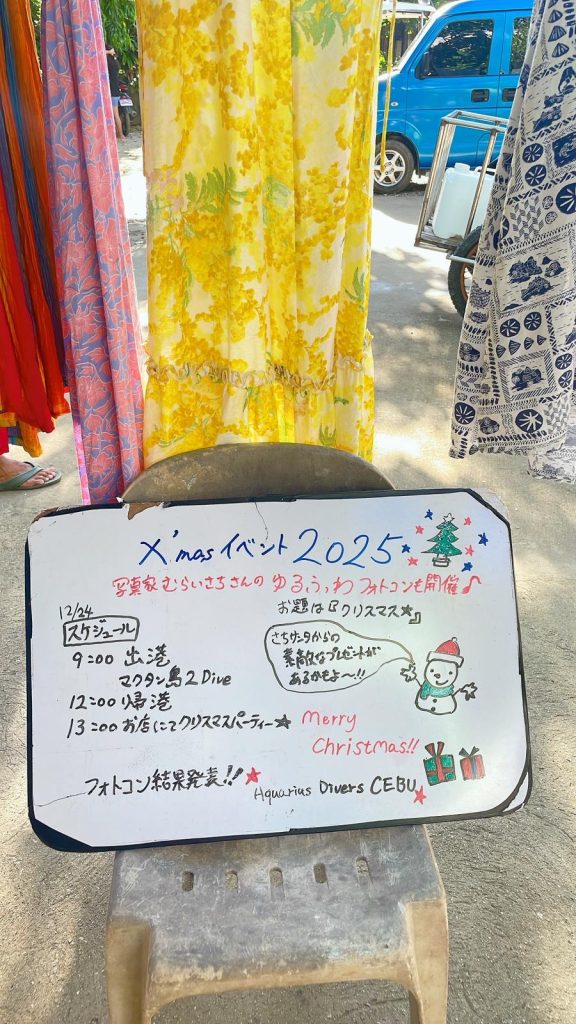 X'mas イベント 2025
写真家むらいさちさんの ゆるふわ フォトコンも開催♪
12/24
お題は『クリスマス★』
スケジュール
さちサンタからの
素敵なプレゼントが
あるかもよ〜!!
9:00 出港
マクタン島 2 Dive
12:00 帰港
13:00 お店にてクリスマスパーティー★
Merry
Christmas!!
フォトコン結果発表!!★
Aquarius Divers CEBU★